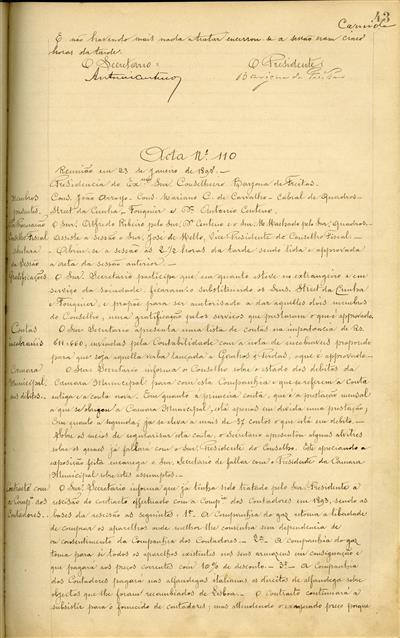 43
E não havendo mais nada a tratar encerrou-se a sessão eram cinco
horas da tarde.
O Secretario:
O Presidente:
Antonio Centeno
Barjona de Freitas
Acta Nº 110
Reunião em 23 de Janeiro de
Presidencia do Exmo Snr. Conselheiro Barjona de Freitas.
Membros
presentes.
Cons. João Arroyo. Cons. Mariano C. de Carvalho. Cabral de Quadros.
Stret da Cunha. Fouquier e Dr. Antonio Centeno.
Conselho Fiscal
O Snr. Alfredo Ribeiro pelo Snr. Dr. Centeno e o Snr. M. Machado pelo Snr. Quadros.
Assiste a sessão o Snr. José de Mello, Vice Presidente do Conselho Fiscal.
Abertura
da Sessão
Abriu-se a sessão ás 2 1/2 horas da tarde sendo lida e approvada
a acta da sessão anterior.
Gratificações.
O Snr. Secretario participa que em quanto esteve no extrangeiro e em
serviço da sociedade, ficaram o substituindo os Snrs. Stret da Cunha
e Fouquier, e propõe para ser autorisado a dar aquelles dois membros
do Conselho, uma gratificação pelos serviços que prestaram o que é approvado.
Contas
incobraveis
O Snr Secretario apresenta uma lista de contas na importancia de Rs.
611.660, enviadas pela Contabilidade com a nota de incobraveis propondo
para que seja aquella verba lançada a Ganhos e Perdas, o que é approvado.
Camara
Municipal
seus debitos.
O Snr. Secretario informa o Conselho sobre o estado dos debitos da
Camara Municipal para com esta Companhia e que se referem á conta
antiga e á conta nova. Com quanto á primeira conta, que é a prestação mensal
a que se obrigou a Camara Municipal, está apenas em divida uma prestação;
Em quanto á segunda, já se eleva a mais de 37 contos o que está em debito.
Sobre os meios de regularisar esta conta, o Secretario apresentou algumas alvitres
sobre os quaes já fallára com o Snr. Presidente do Conselho. Este apreciando a
exposição feita encarrega o Snr. Secretario de fallar com o Presidente da Camara
Municipal sobre este assumpto.
Contracto com
a Compª dos
Contadores.
O Snr. Secretario informa que já tinha sido tratado pelo Snr. Presidente a
rescisão do contracto effectuado com a Compª dos Contadores em 1893, sendo as
bases da rescisão as seguintes: 1ª A Companhia do gaz retoma a liberdade
de comprar os apparelhos onde melhor lhe convenha sem dependencia de
consentimento da Companhia dos Contadores. - 2ª A companhia do gaz
toma para si todos os aparelhos existentes nos seus armazens em consignação e
que pagará aos preços correntes com 10% de desconto. - 3ª A Companhia
dos Contadores pagará nas alfandegas italianas os direitos de alfandega sobre
objectos que lhe foram recambiados de Lisboa. O contracto continuará a
subsistir para o fornecido de contadores, mas attendendo o exagerado preço porque